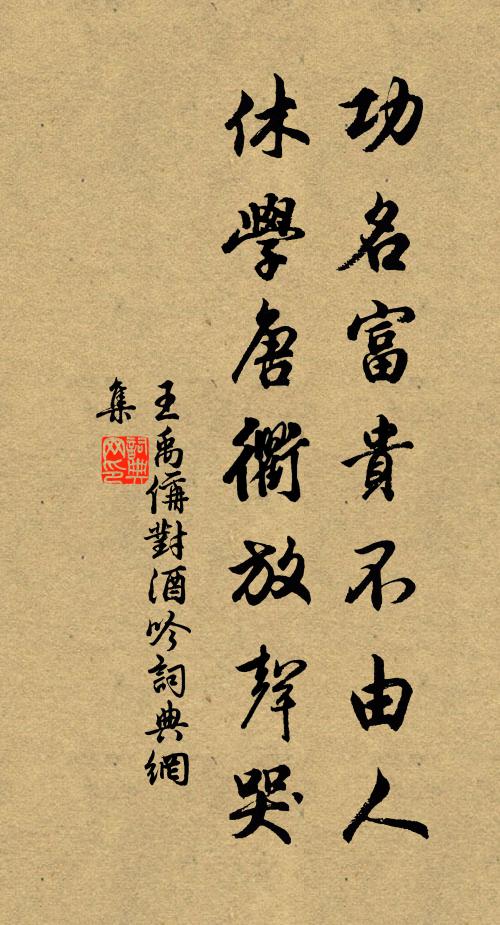 功名富貴不由人
休學唐衢放聲哭
王禹偁對酒吟詞典網
集
詞典
网印